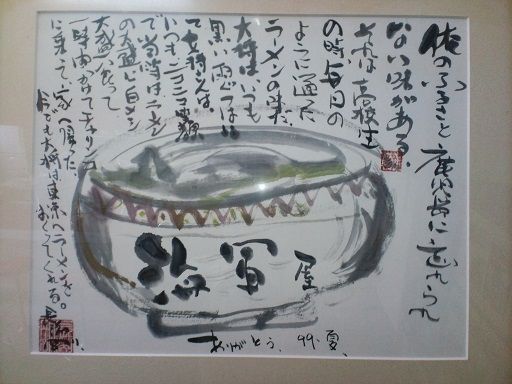 僕のふるさと鹿児島に忘れられ
ない味がある。
それは高校生
の時毎日の
ように通った
ラーメンの味だ
大将はいつも
黒い雨ぐつはい
て女将さんは、
いつもニコニコ笑顔
で当時は
の大盛と白メシ
大盛食って
一時間かけてチャリンコ
に乗って、家へ帰った
今でも大将は東京へラーメンを。
おくってくれる。
海軍屋
ありがとう、99.夏、